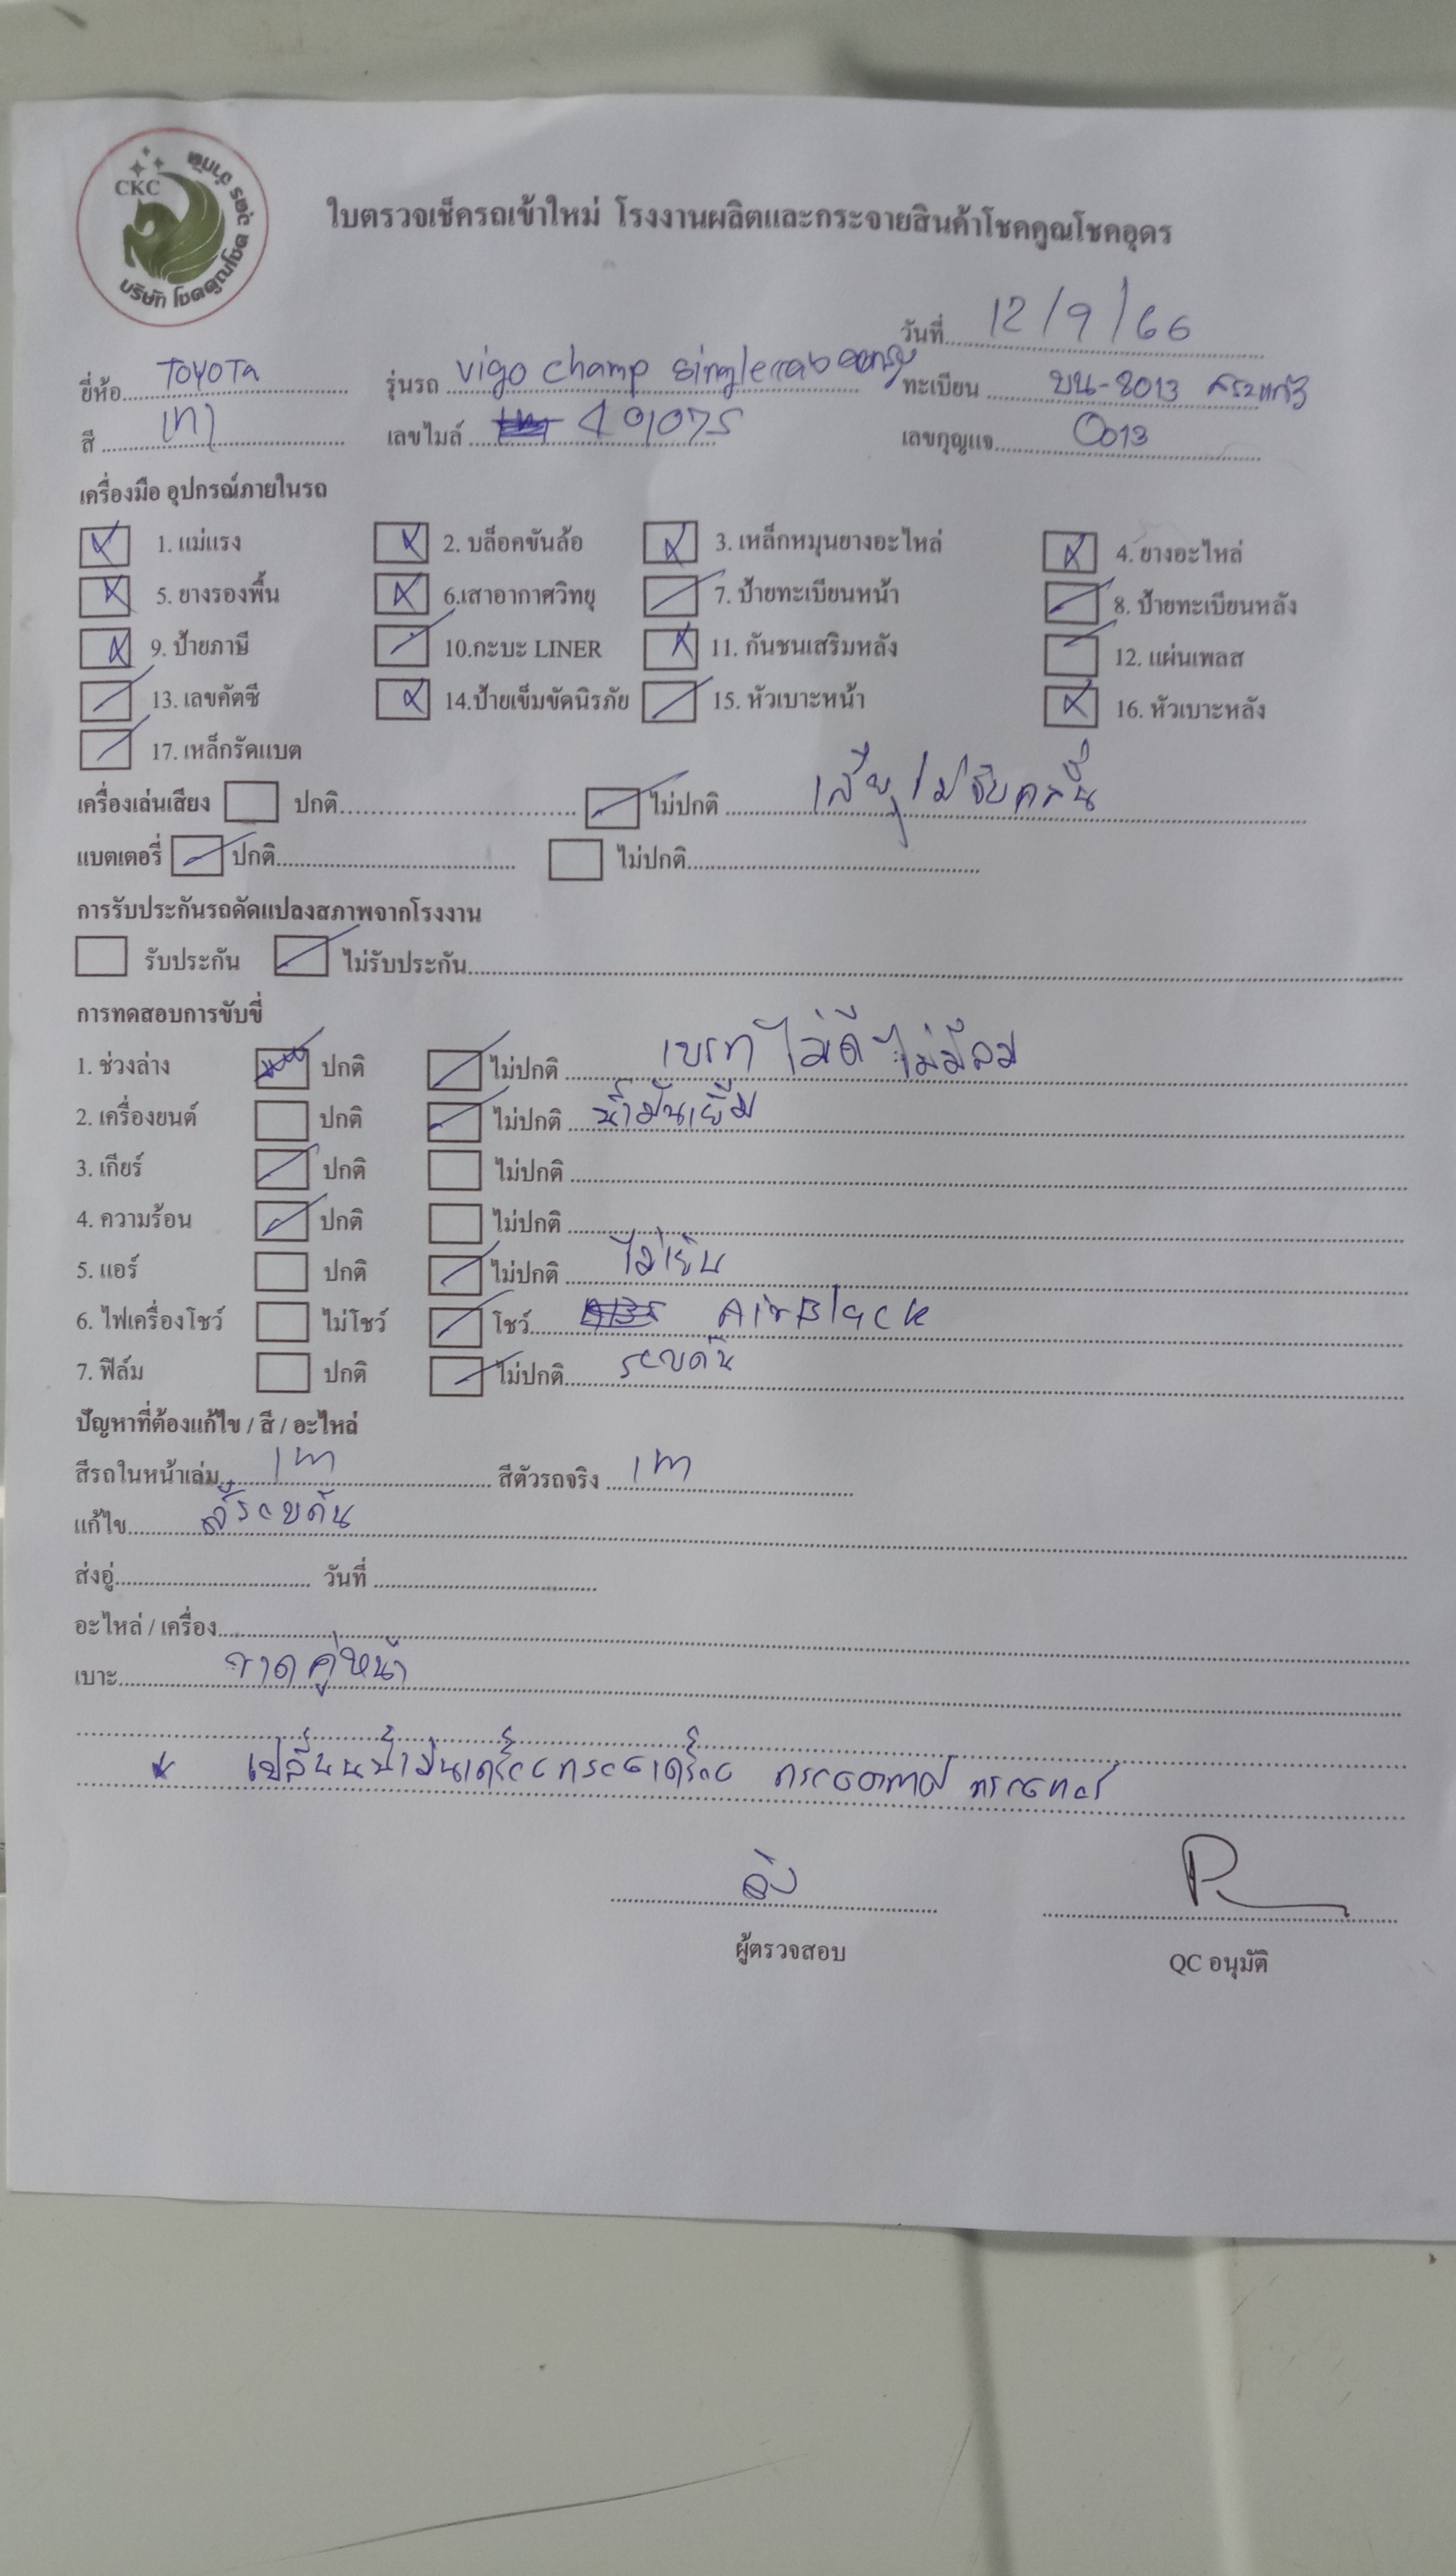 CKC
บริษัท โชคคูณโชค วัตร จำกัด
ใบตรวจเช็ครถเข้าใหม่ โรงงานผลิตและกระจายสินค้าโชคคูณโชคอุดร
วันที่ 12/9/66
ยี่ห้อ TOYOTA รุ่นรถ vigo champ singlecab ทะเบียน บน-8013 สระแก้ว
สี เทา เลขไมล์ 401075 เลขกุญแจ 0013
เครื่องมือ อุปกรณ์ภายในรถ
1. แม่แรง 2. บล็อคขันล้อ 3. เหล็กหมุนยางอะไหล่ 4. ยางอะไหล่
5. ยางรองพื้น 6.เสาอากาศวิทยุ 7. ป้ายทะเบียนหน้า 8. ป้ายทะเบียนหลัง
9. ป้ายภาษี 10.กะบะ LINER 11. กันชนเสริมหลัง 12. แผ่นเพลส
13. เลขคัตซี 14.ป้ายเข็มขัดนิรภัย 15. หัวเบาะหน้า 16. หัวเบาะหลัง
17. เหล็กรัดแบต
เครื่องเล่นเสียง ปกติ ไม่ปกติ ไม่จับคลื่น
แบตเตอรี่ ปกติ ไม่ปกติ
การรับประกันรถดัดแปลงสภาพจากโรงงาน
รับประกัน ไม่รับประกัน
การทดสอบการขับขี่
1. ช่วงล่าง ปกติ ไม่ปกติ เบรก ไม่ดี ไม่มีลม
2. เครื่องยนต์ ปกติ ไม่ปกติ น้ำมันเยิ้ม
3. เกียร์ ปกติ ไม่ปกติ
4. ความร้อน ปกติ ไม่ปกติ
5. แอร์ ปกติ ไม่ปกติ ไม่เย็น
6. ไฟเครื่องโชว์ ไม่โชว์ โชว์ AirBlack
7. ฟิล์ม ปกติ ไม่ปกติ รอบคัน
ปัญหาที่ต้องแก้ไข / สี / อะไหล่
สีรถในหน้าเล่ม เทา สีตัวรถจริง เทา
แก้ไข สีรอบคัน
ส่งอู่ วันที่
อะไหล่ / เครื่อง
เบาะ ขาดคู่หน้า
* เปลี่ยนน้ำมันเครื่อง กรองเครื่อง กรองอากาศ กรองแอร์
ผู้ตรวจสอบ QC อนุมัติ